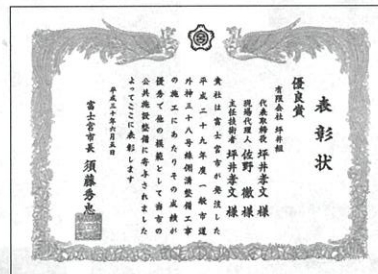 表彰状
優良賞
有限会社 坪井組
代表取締役 坪井孝文 様
現場代理人 佐野 徹 様
主任技術者 坪井孝文 様
貴社は富士宮市が発注した
平成二十九年度一般市道
外神三十八号線側溝整備工事
の施工にあたりその成績が
優秀で他の模範として当市の
公共施設整備に寄与されました
よってここに表彰します
平成三十年六月五日
富士宮市長 須藤秀忠